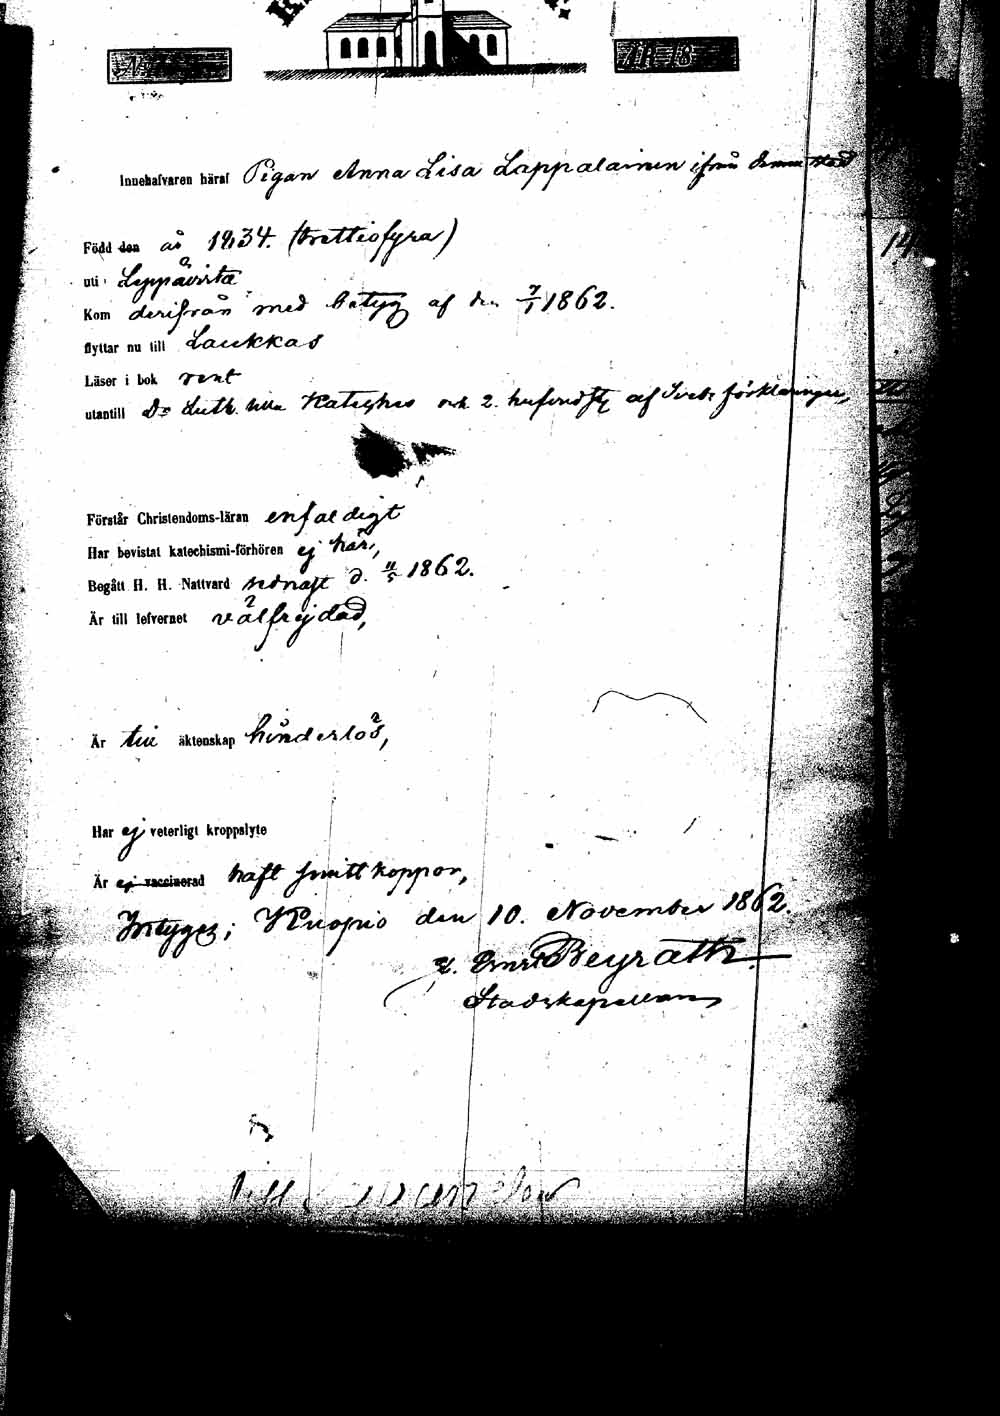 ÅR 18
Innehafvaren häraf Pigan Anna Lisa Lappalainen ifrån denna stad
Född den år 1834. (trettiofyra)
uti Leppävirta
Kom derifrån med betyg af den 7/1 1862.
flyttar nu till Laukkas
Läser i bok rent
utantill Dr Luth. lilla Kateches och 2. hufvudst. af Sveb. förklaringen,
Förstår Christendoms-läran enfaldigt
Har bevistat katechismi-förhören ej här,
Begått H. H. Nattvard sednast d. 11/5 1862.
Är till lefvernet välfrejdad,
Är till äktenskap hinderlös,
Har ej veterligt kroppslyte
Är ej vaccinerad haft smittkoppor,
Intygar; Kuopio den 10. November 1862.
Beyrath.
Stadskapellan